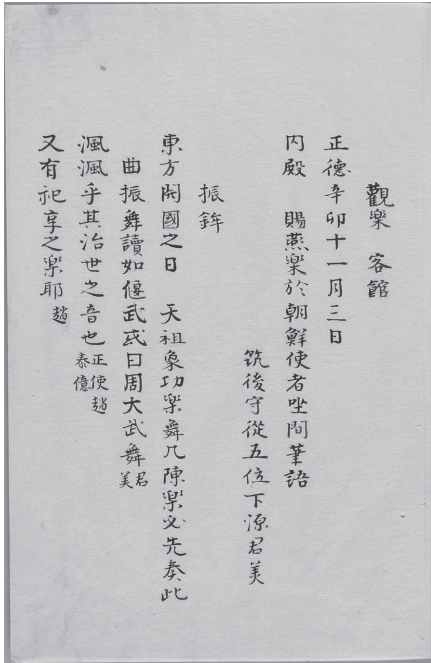 觀樂 客館
正德辛卯十一月三日
內殿 賜燕樂於朝鮮使者坐間筆語
筑後守從五位下源君美
振鉾
東方開國之日 天祖象功樂舞凡陳樂必先奏此
曲振舞讀如偃武或曰周大武舞君美
渢渢乎其治世之音也正使趙泰億
又有祀享之楽耶趙